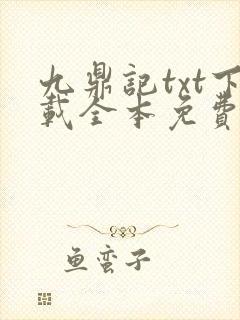 九鼎記txt下
載全本免費
魚蛮子